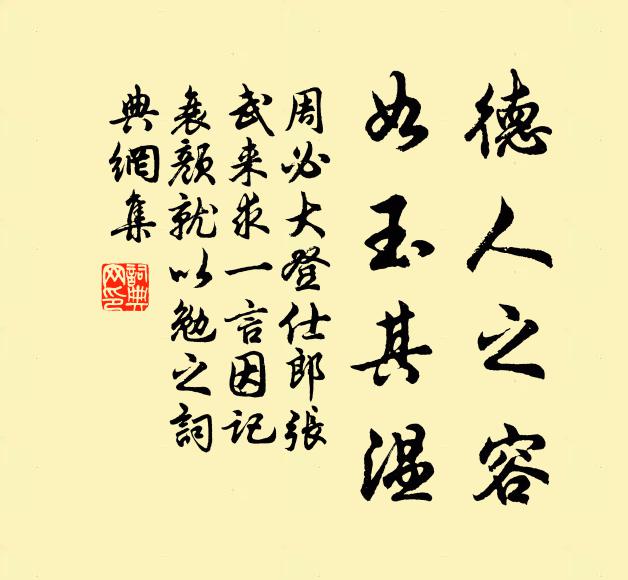 德人之容
如玉其温
周必大登仕郎張
武来求一言因记
衰颜就以勉之詞
典網集
詞典网印